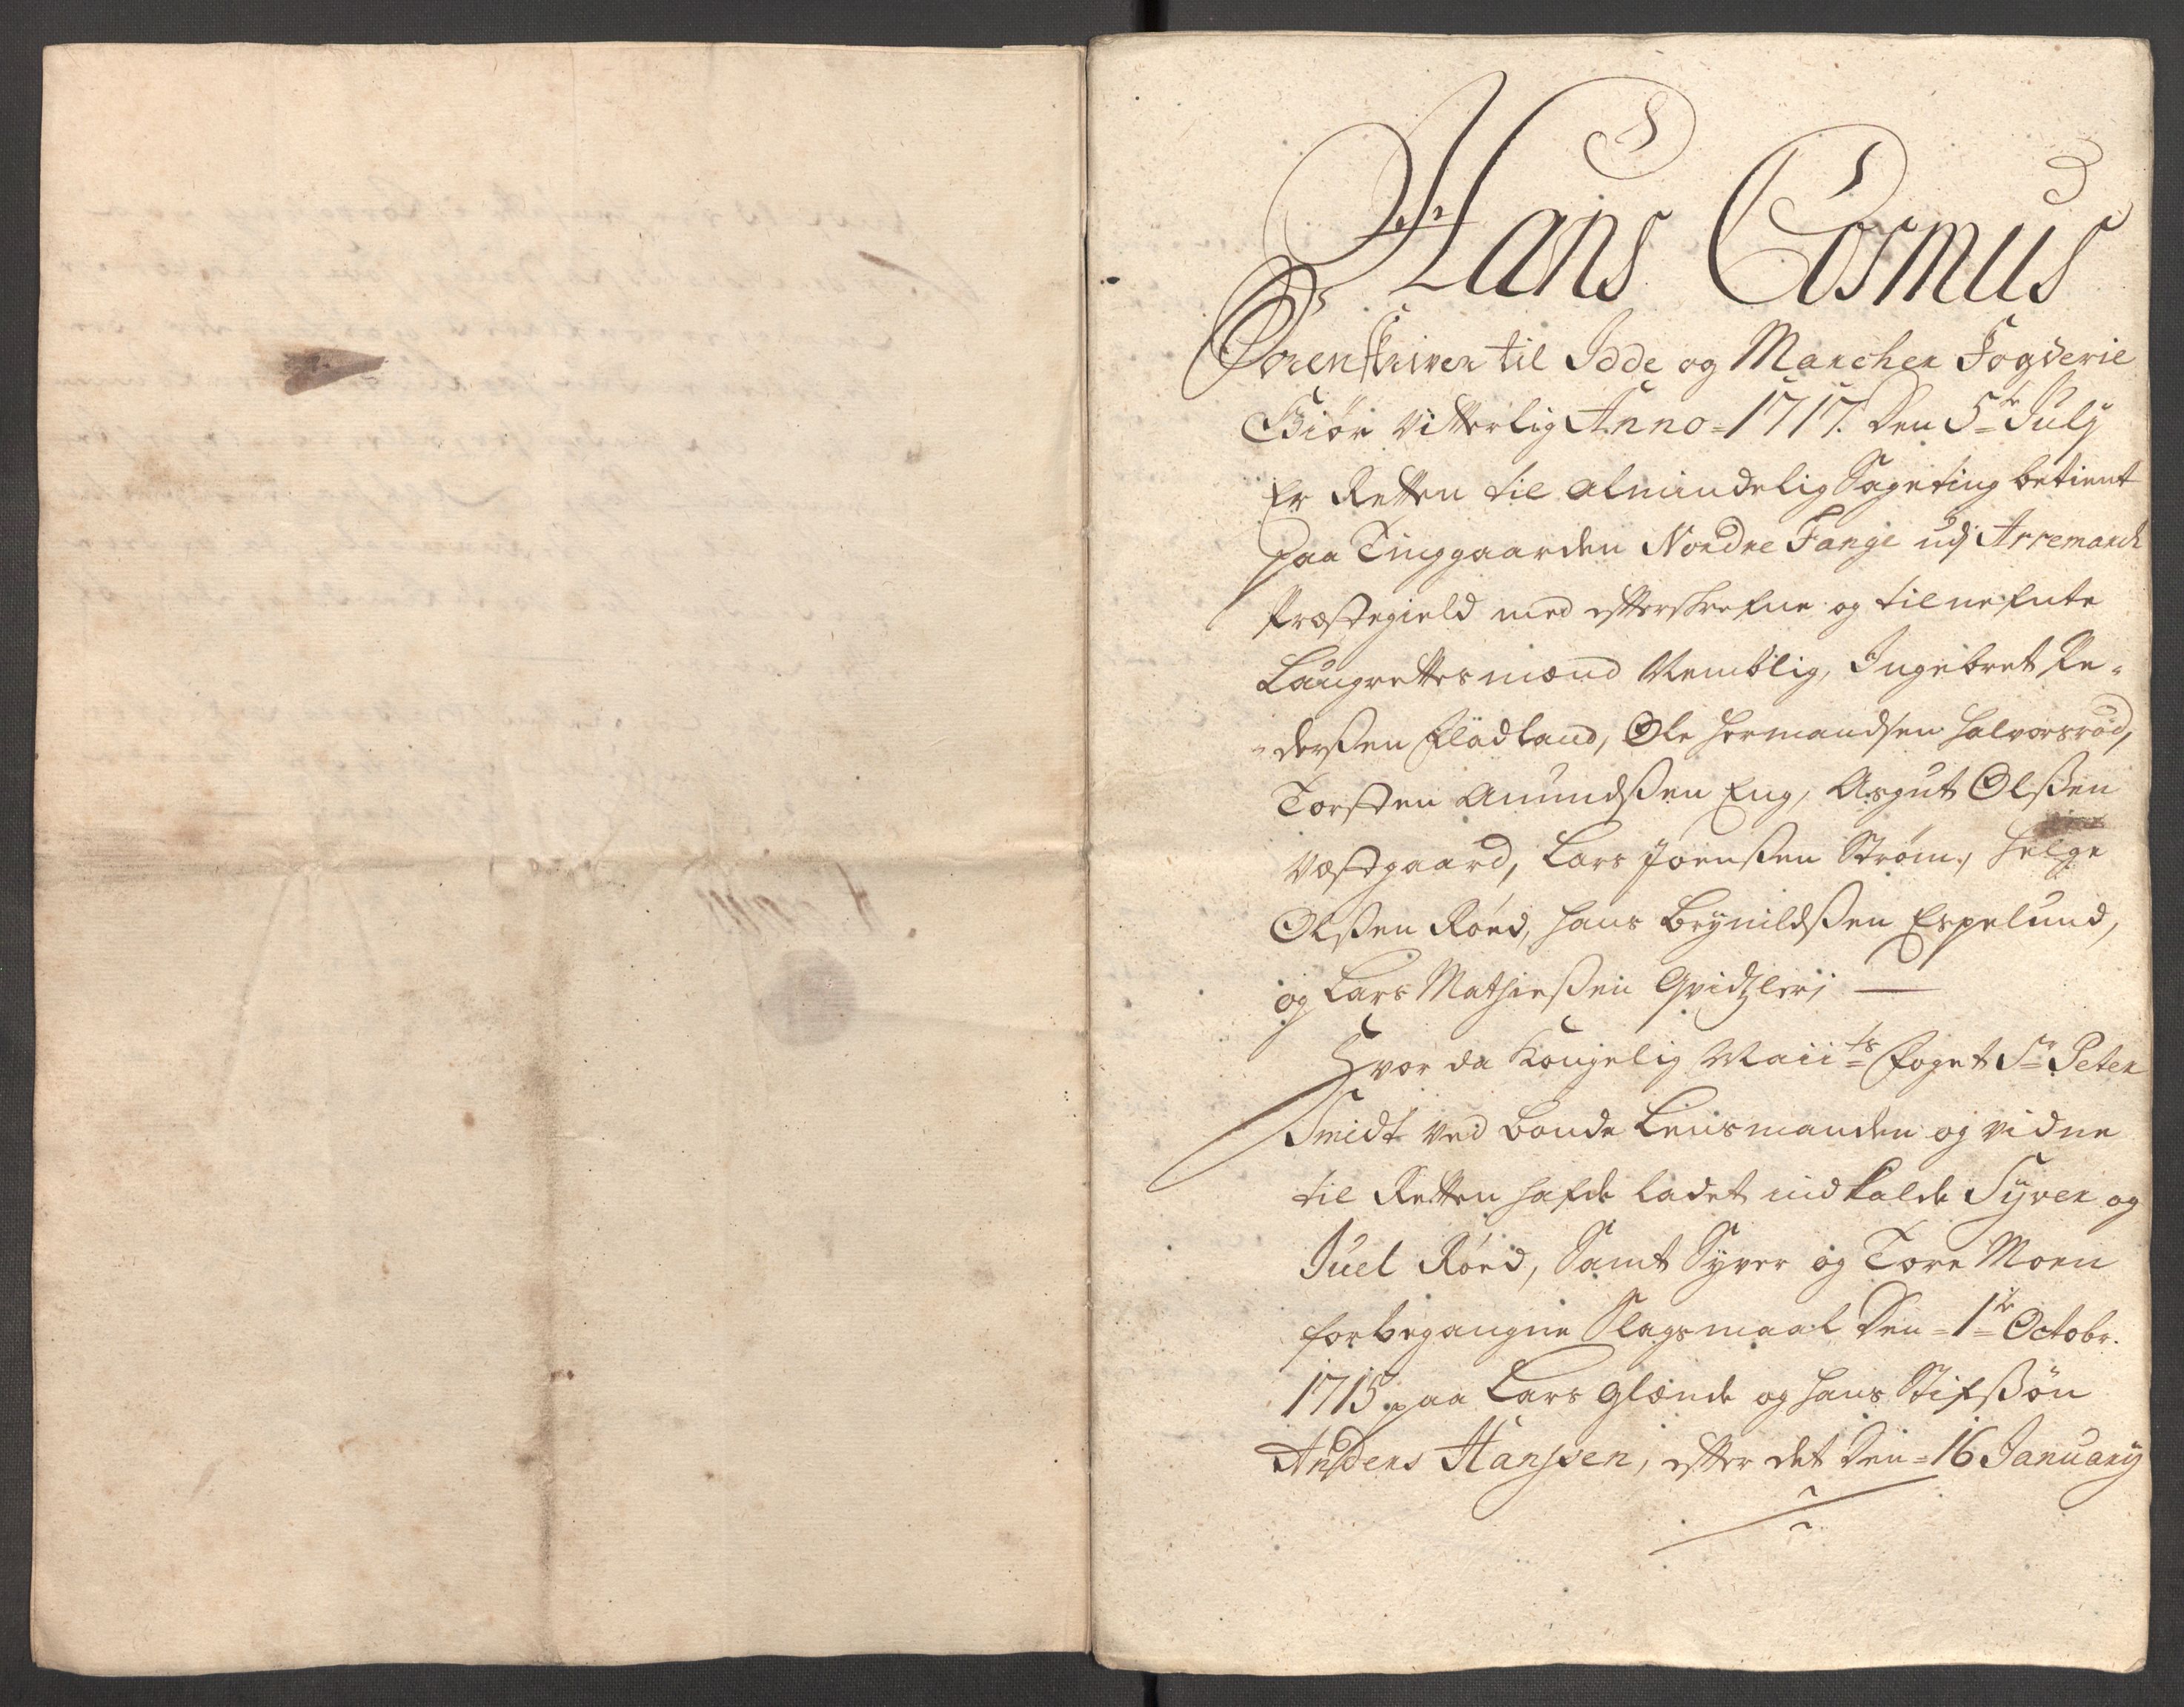 Hans Cosmus
Sorenskriver til Idde og Marcher Fogderie
Giør Vitterlig Anno = 1717. Den 5te July
Er Retten til Almindelig Sageting betient
paa Tinggaarden Nordre Fange udj Arremarck
Præstegield med efterskrefne og tilnefnte
Laugrettesmænd Nemblig, Ingebret Re-
-derßen Flødland, Ole Hermandsen Halvorsrød,
Torsten Amundßen Eng, Asgut Olßen
Væstgaard, Lars Joenßen Strøm, Helge
Olßen Røed, Hans Brynildßen Espelund,
og Lars Mathisßen
Hvor da Kongelig Maiits Foget Sr Peter
Smidt ved Bonde Lensmanden og vidne
til Retten hafde ladet indkalde Syver og
Juel Røed, Samt Syver og Tore Moen
for begangne Slagsmaal Den = 1te Octobr.
1715 paa Lars Glænde og hans Stifßøn
Anders Hanssen, efter det Den = 16 January